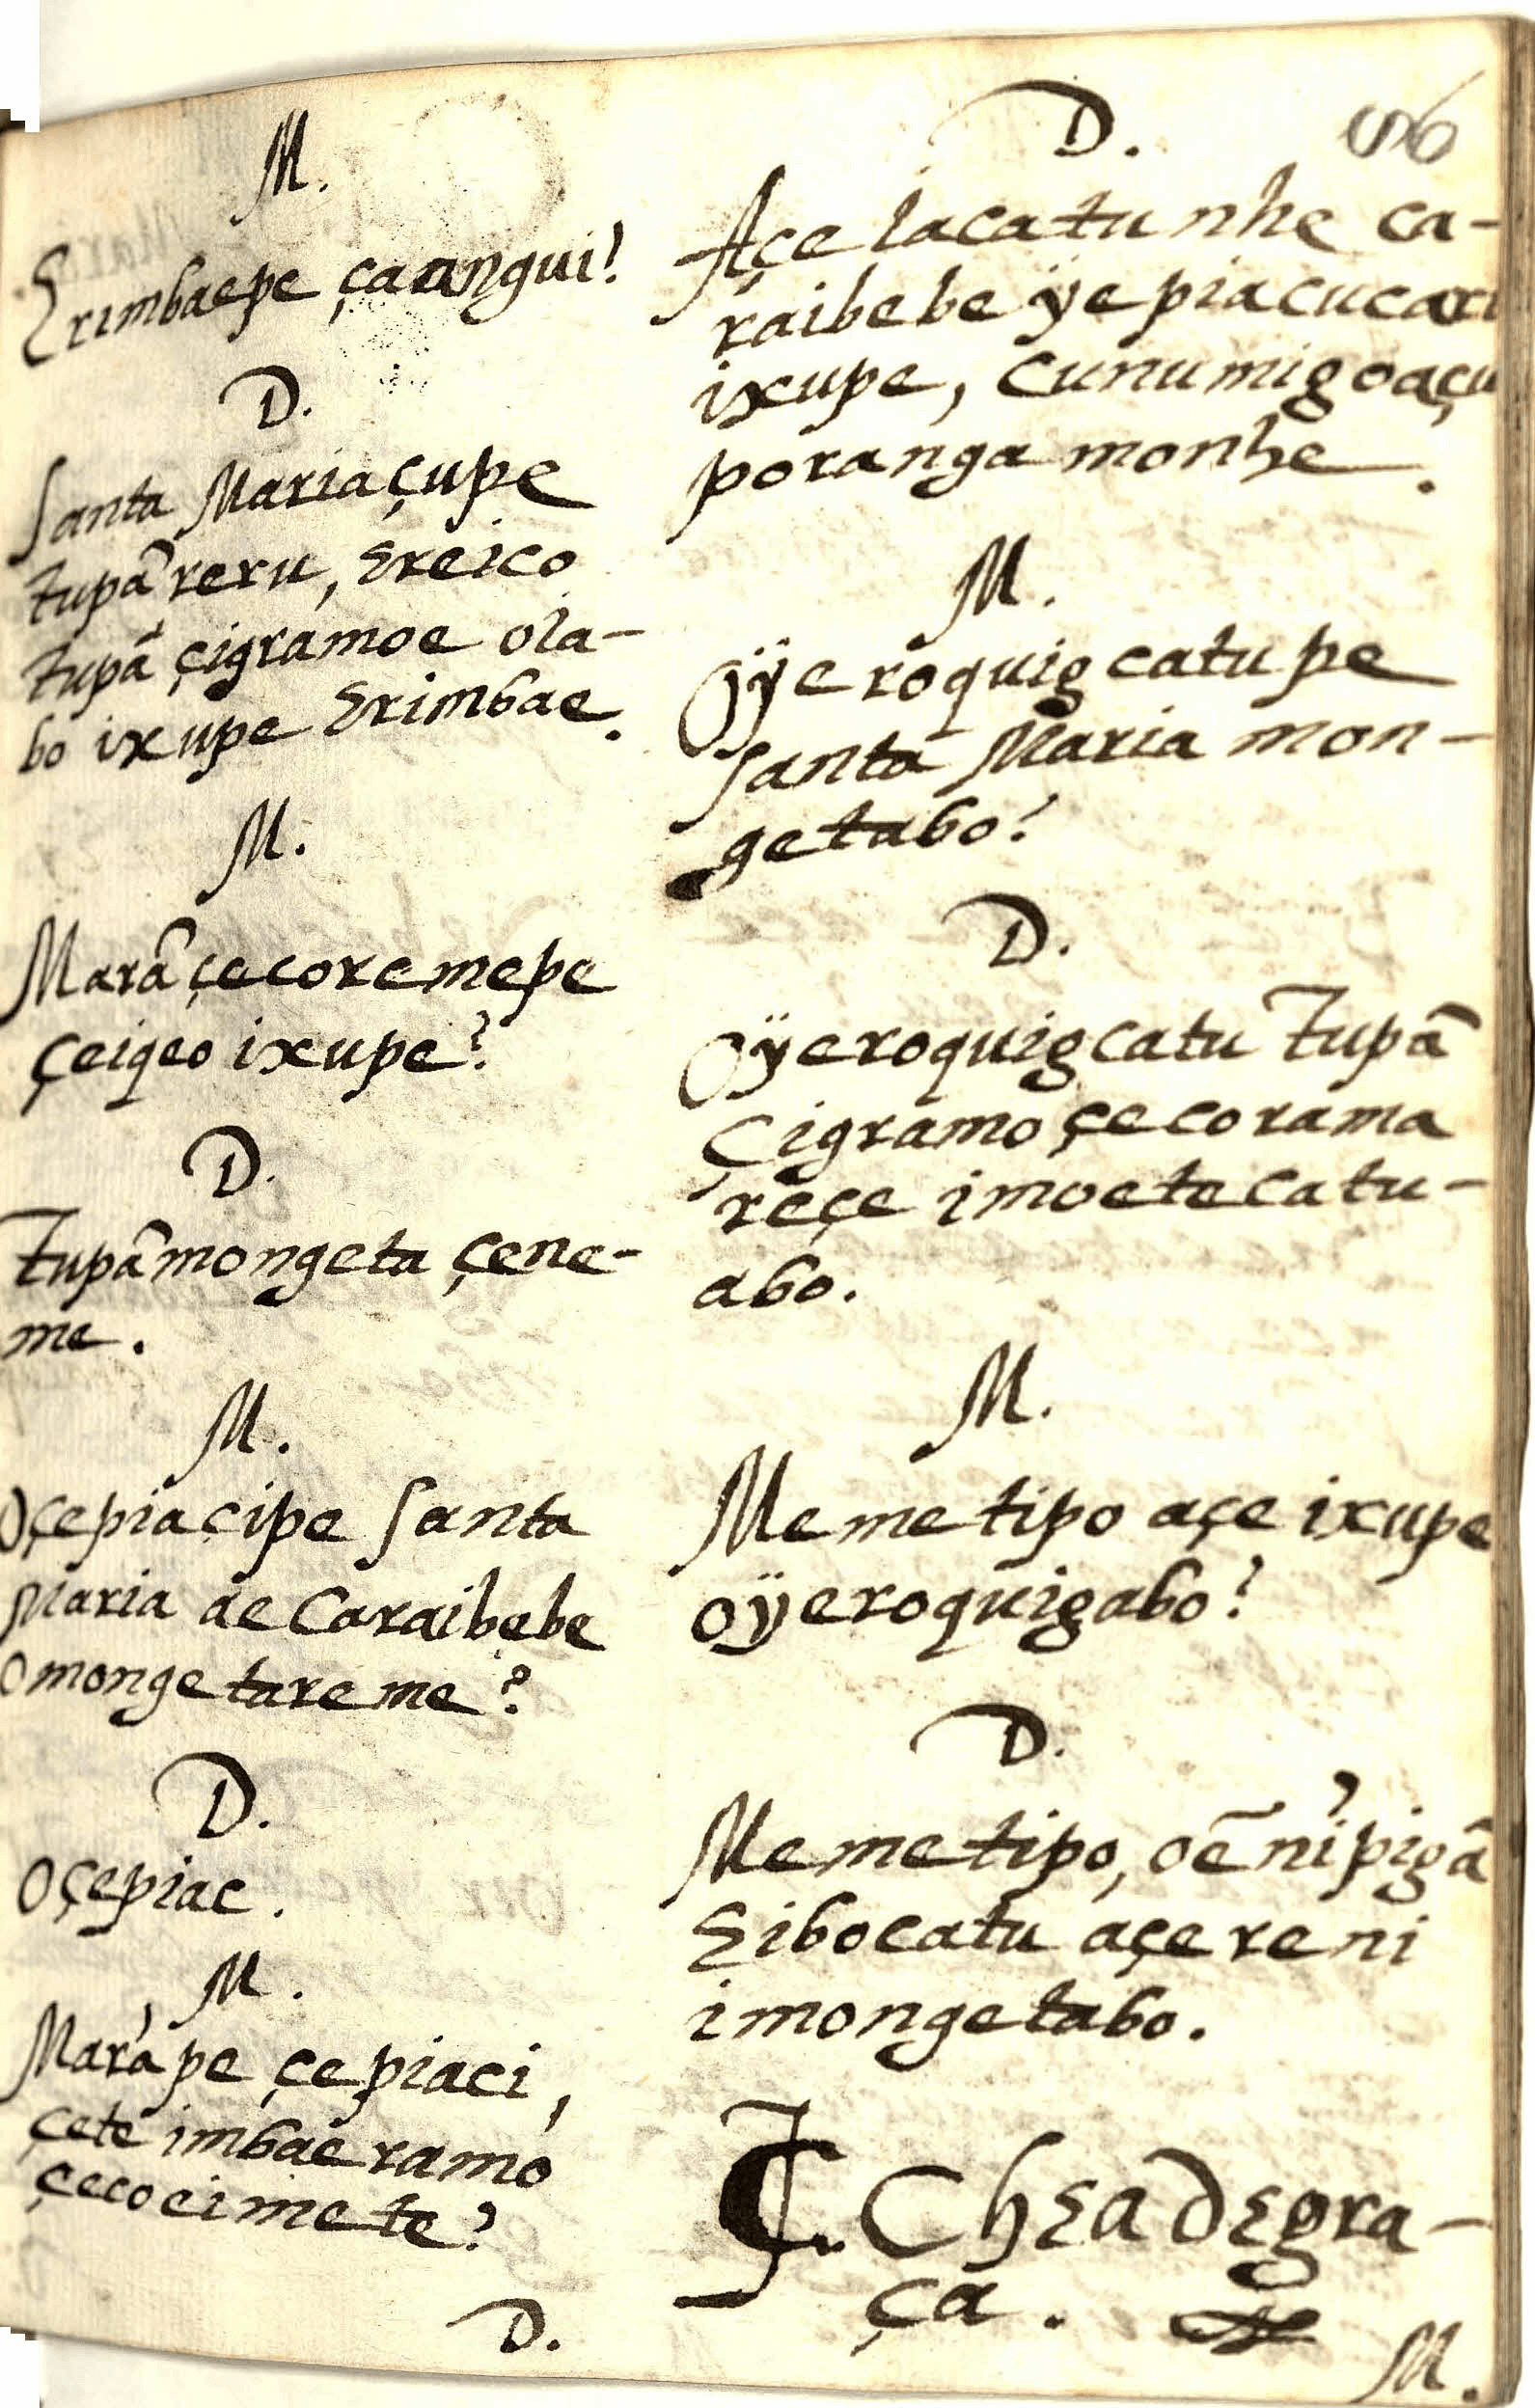 M.
Erimbaepe çaangui?
D.
Santa Maria çupe
tupã reru, Ereico
tupã çigramoe ola-
bo ixupe Erimbae.
M.
Marã çecoremepe
çeiqeo ixupe?
D.
Tupã mongeta çene-
me.
M.
Oçepiacipe Santa
Maria ae Caraibebe
omongetareme?
D.
Oçepiac.
M.
Marápe çepiaci,
çete imbae ramo
çecoeimete?
D.
56
D.
Açe lacatu nhe ca-
raibebe ÿe piacucari
ixupe, Cunumigoaçu
poranga monhe.
M.
Oÿeroquig catupe
Santa Maria mon-
getabo?
D.
Oÿeroquig catu Tupã
Çigramo çecorama
reçe imoetecatu-
abo.
M.
Memetipo açe ixupe
oÿeroquigabo?
D.
Memetipo, oẽ nipigã
Eibocatu açe reni
imongetabo.
₵. Chea de gra-
ça.
M.